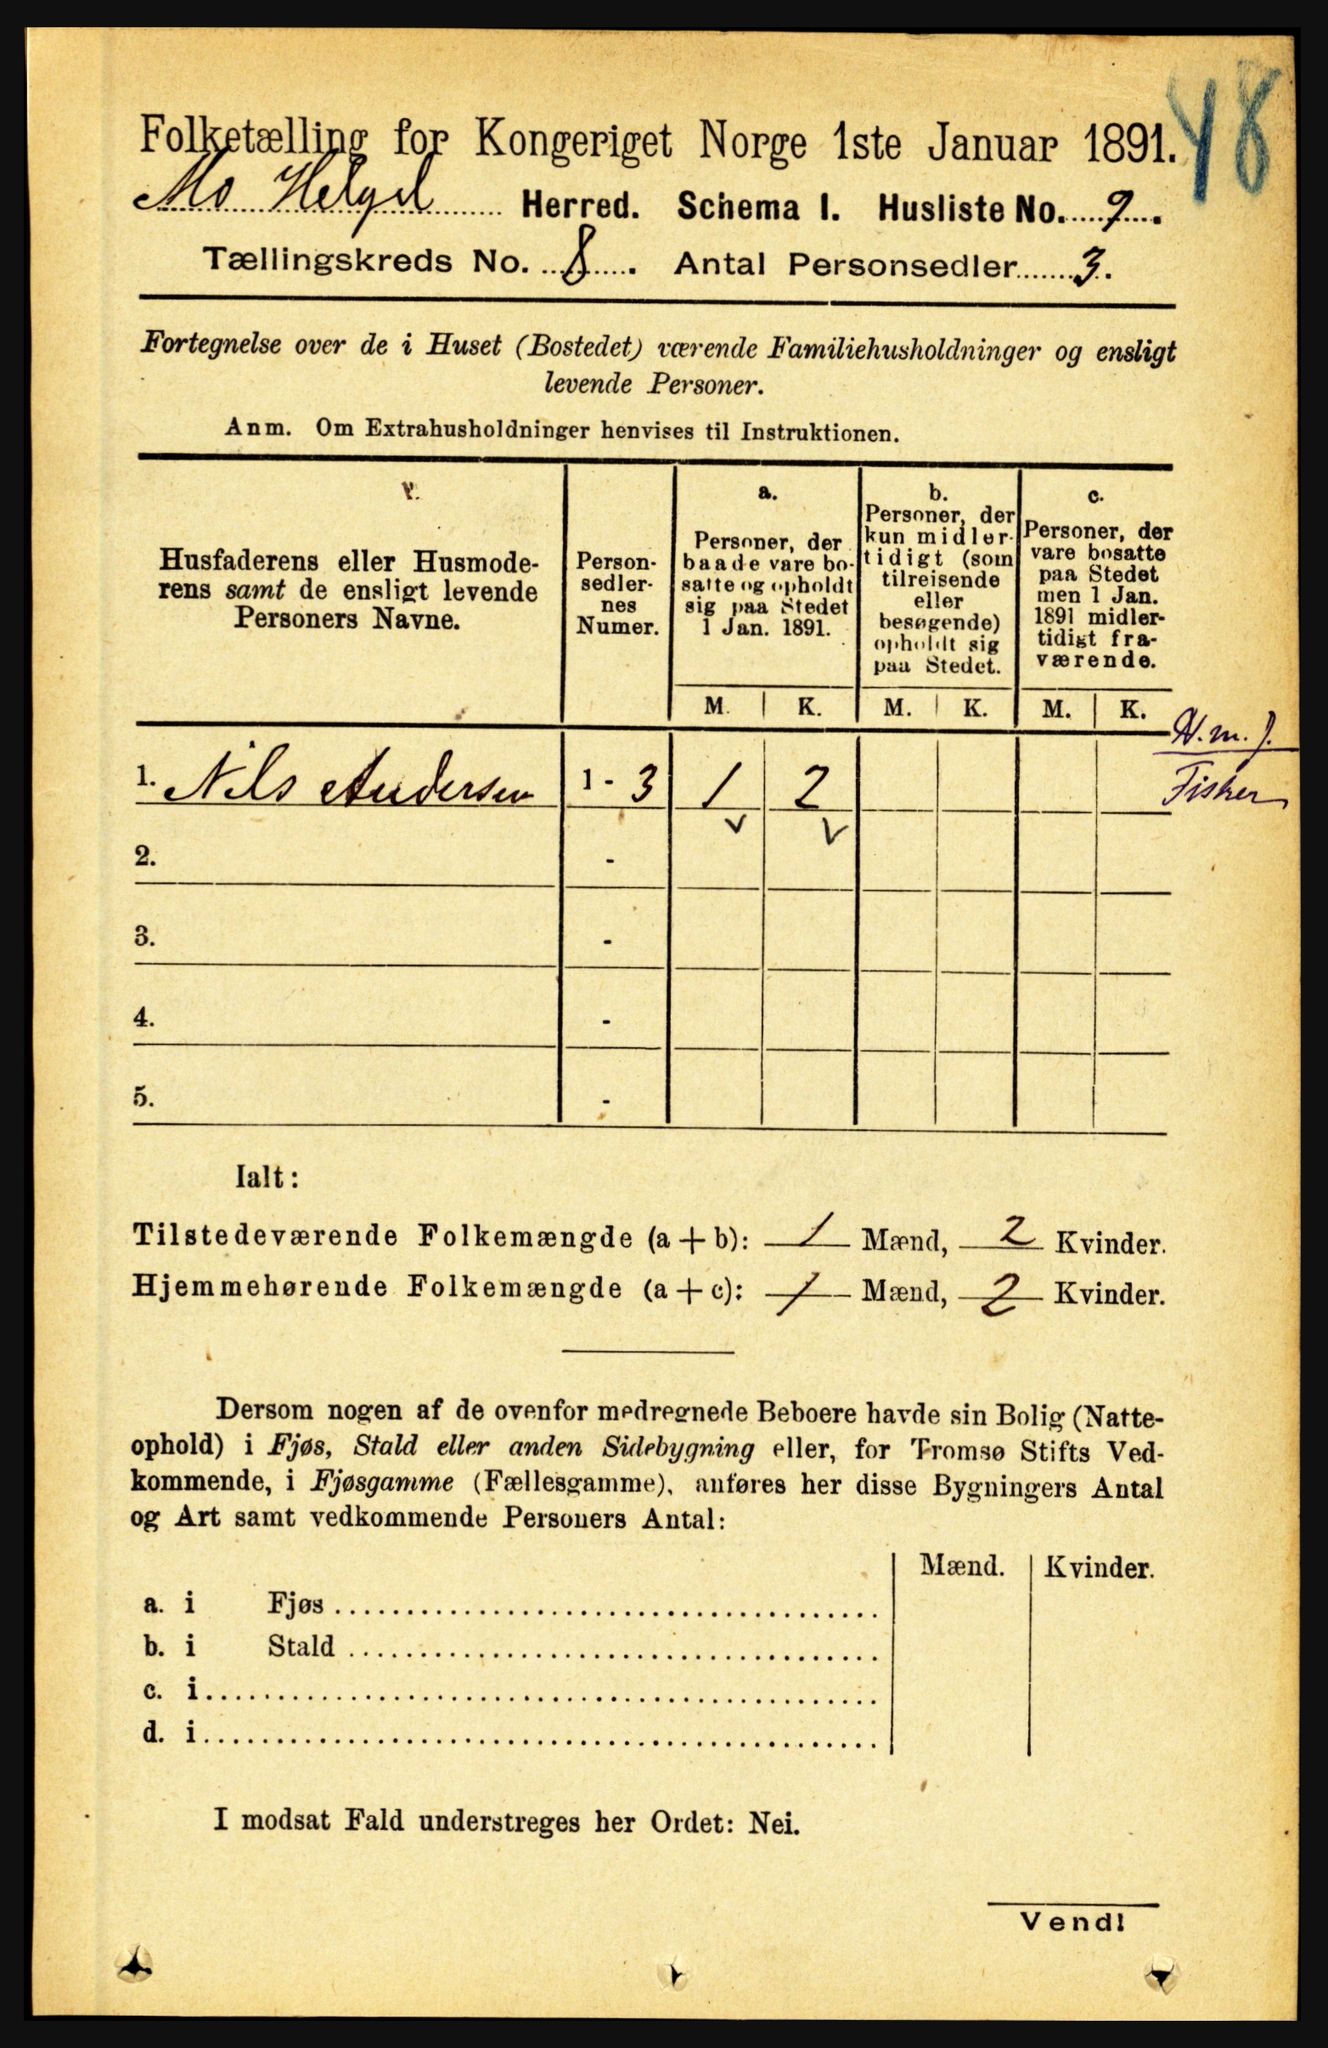 48
Folketælling for Kongeriget Norge 1ste Januar 1891.
Mo Helgel Herred. Schema I. Husliste No. 9.
Tællingskreds No. 8. Antal Personsedler 3.
Fortegnelse over de i Huset (Bostedet) værende Familiehusholdninger og ensligt
levende Personer.
Anm. Om Extrahusholdninger henvises til Instruktionen.
Husfaderens eller Husmode-
rens samt de ensligt levende
Personers Navne.
Person-
sedler-
nes
Numer.
a.
Personer, der
baade vare bo-
satte og opholdt
sig paa Stedet
1 Jan. 1891.
b.
Personer, der
kun midler-
tidigt (som
tilreisende
eller
besøgende)
opholdt sig
paa Stedet.
c.
Personer, der
vare bosatte
paa Stedet
men 1 Jan.
1891 midler-
tidigt fra-
værende.
M. K. M. K. M. K.
H. m. J.
1. Nils Andersen 1 - 3 1 2 Fisker
2. -
3. -
4. -
5. -
Ialt:
Tilstedeværende Folkemængde (a + b): 1 Mænd, 2 Kvinder.
Hjemmehørende Folkemængde (a + c): 1 Mænd, 2 Kvinder.
Dersom nogen af de ovenfor medregnede Beboere havde sin Bolig (Natte-
ophold) i Fjøs, Stald eller anden Sidebygning eller, for Tromsø Stifts Ved-
kommende, i Fjøsgamme (Fællesgamme), anføres her disse Bygningers Antal
og Art samt vedkommende Personers Antal:
Mænd. Kvinder.
a. i Fjøs
b. i Stald
c. i
d. i
I modsat Fald understreges her Ordet: Nei.
Vend!